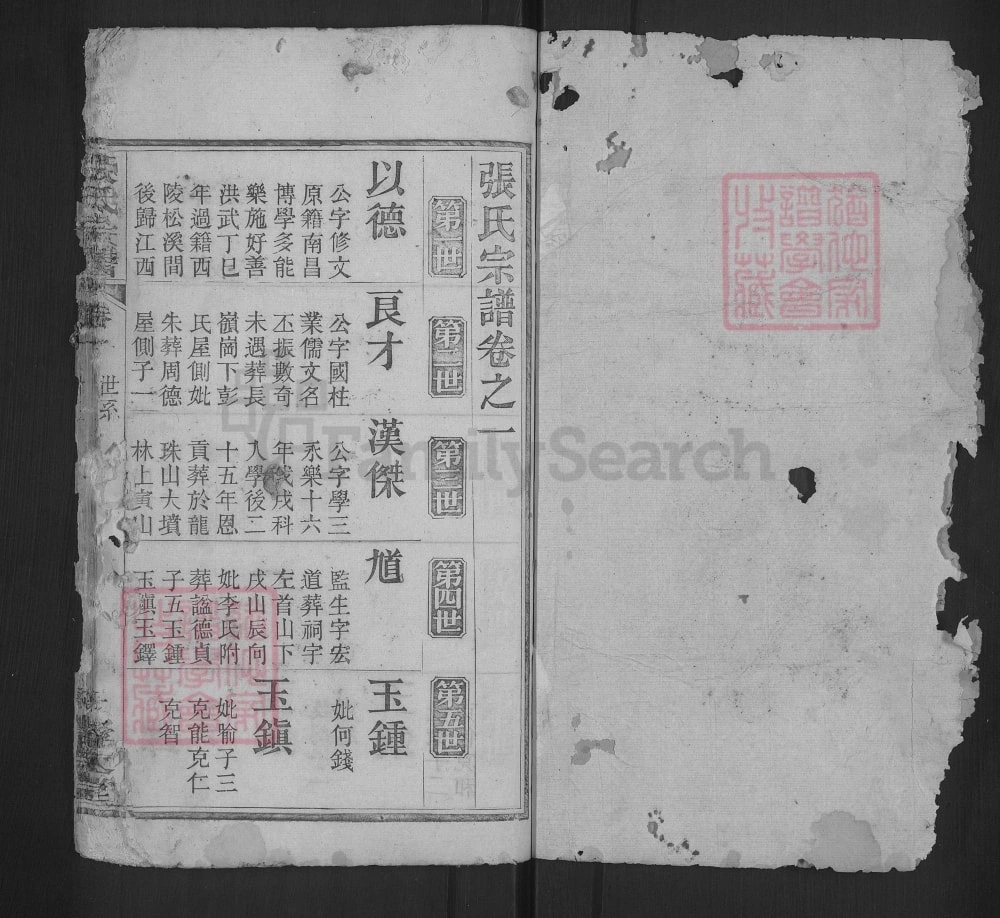 張氏宗譜卷之一
第一世
第二世
第三世
第四世
第五世
以德
公字修文
原籍南昌
博學多能
樂施好善
洪武丁巳
年過籍西
陵松溪間
後歸江西
良才
公字國柱
業儒文名
丕振數奇
未遇葬長
嶺崗下彭
氏屋側妣
朱葬周德
屋側子一
漢傑
公字學三
永樂十六
年戊戌科
入學後二
十五年恩
貢葬於龍
珠山大墳
林上寅山
馗
監生字宏
道葬祠宇
左首山下
戌山辰向
妣李氏附
葬諡德貞
子五玉鍾
玉鎮玉鐸
玉鍾
妣何錢
玉鎮
妣喻子三
克能克仁
克智
張氏宗譜
卷一
世系
FamilySearch